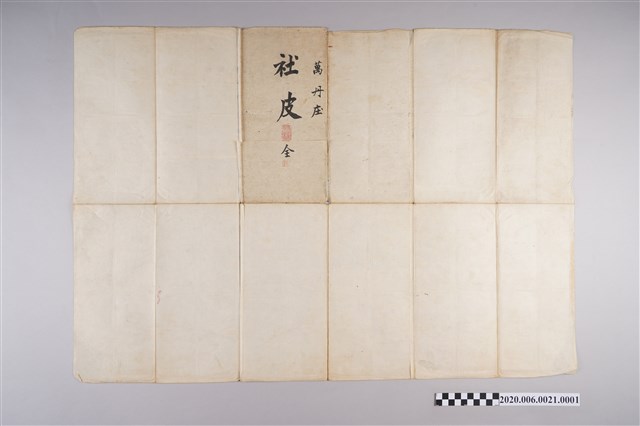 萬丹庄
社皮
全
2020.006.0021.0001